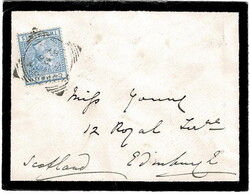 Miss Young
12 Royal Terr.
Edinburgh
Scotland